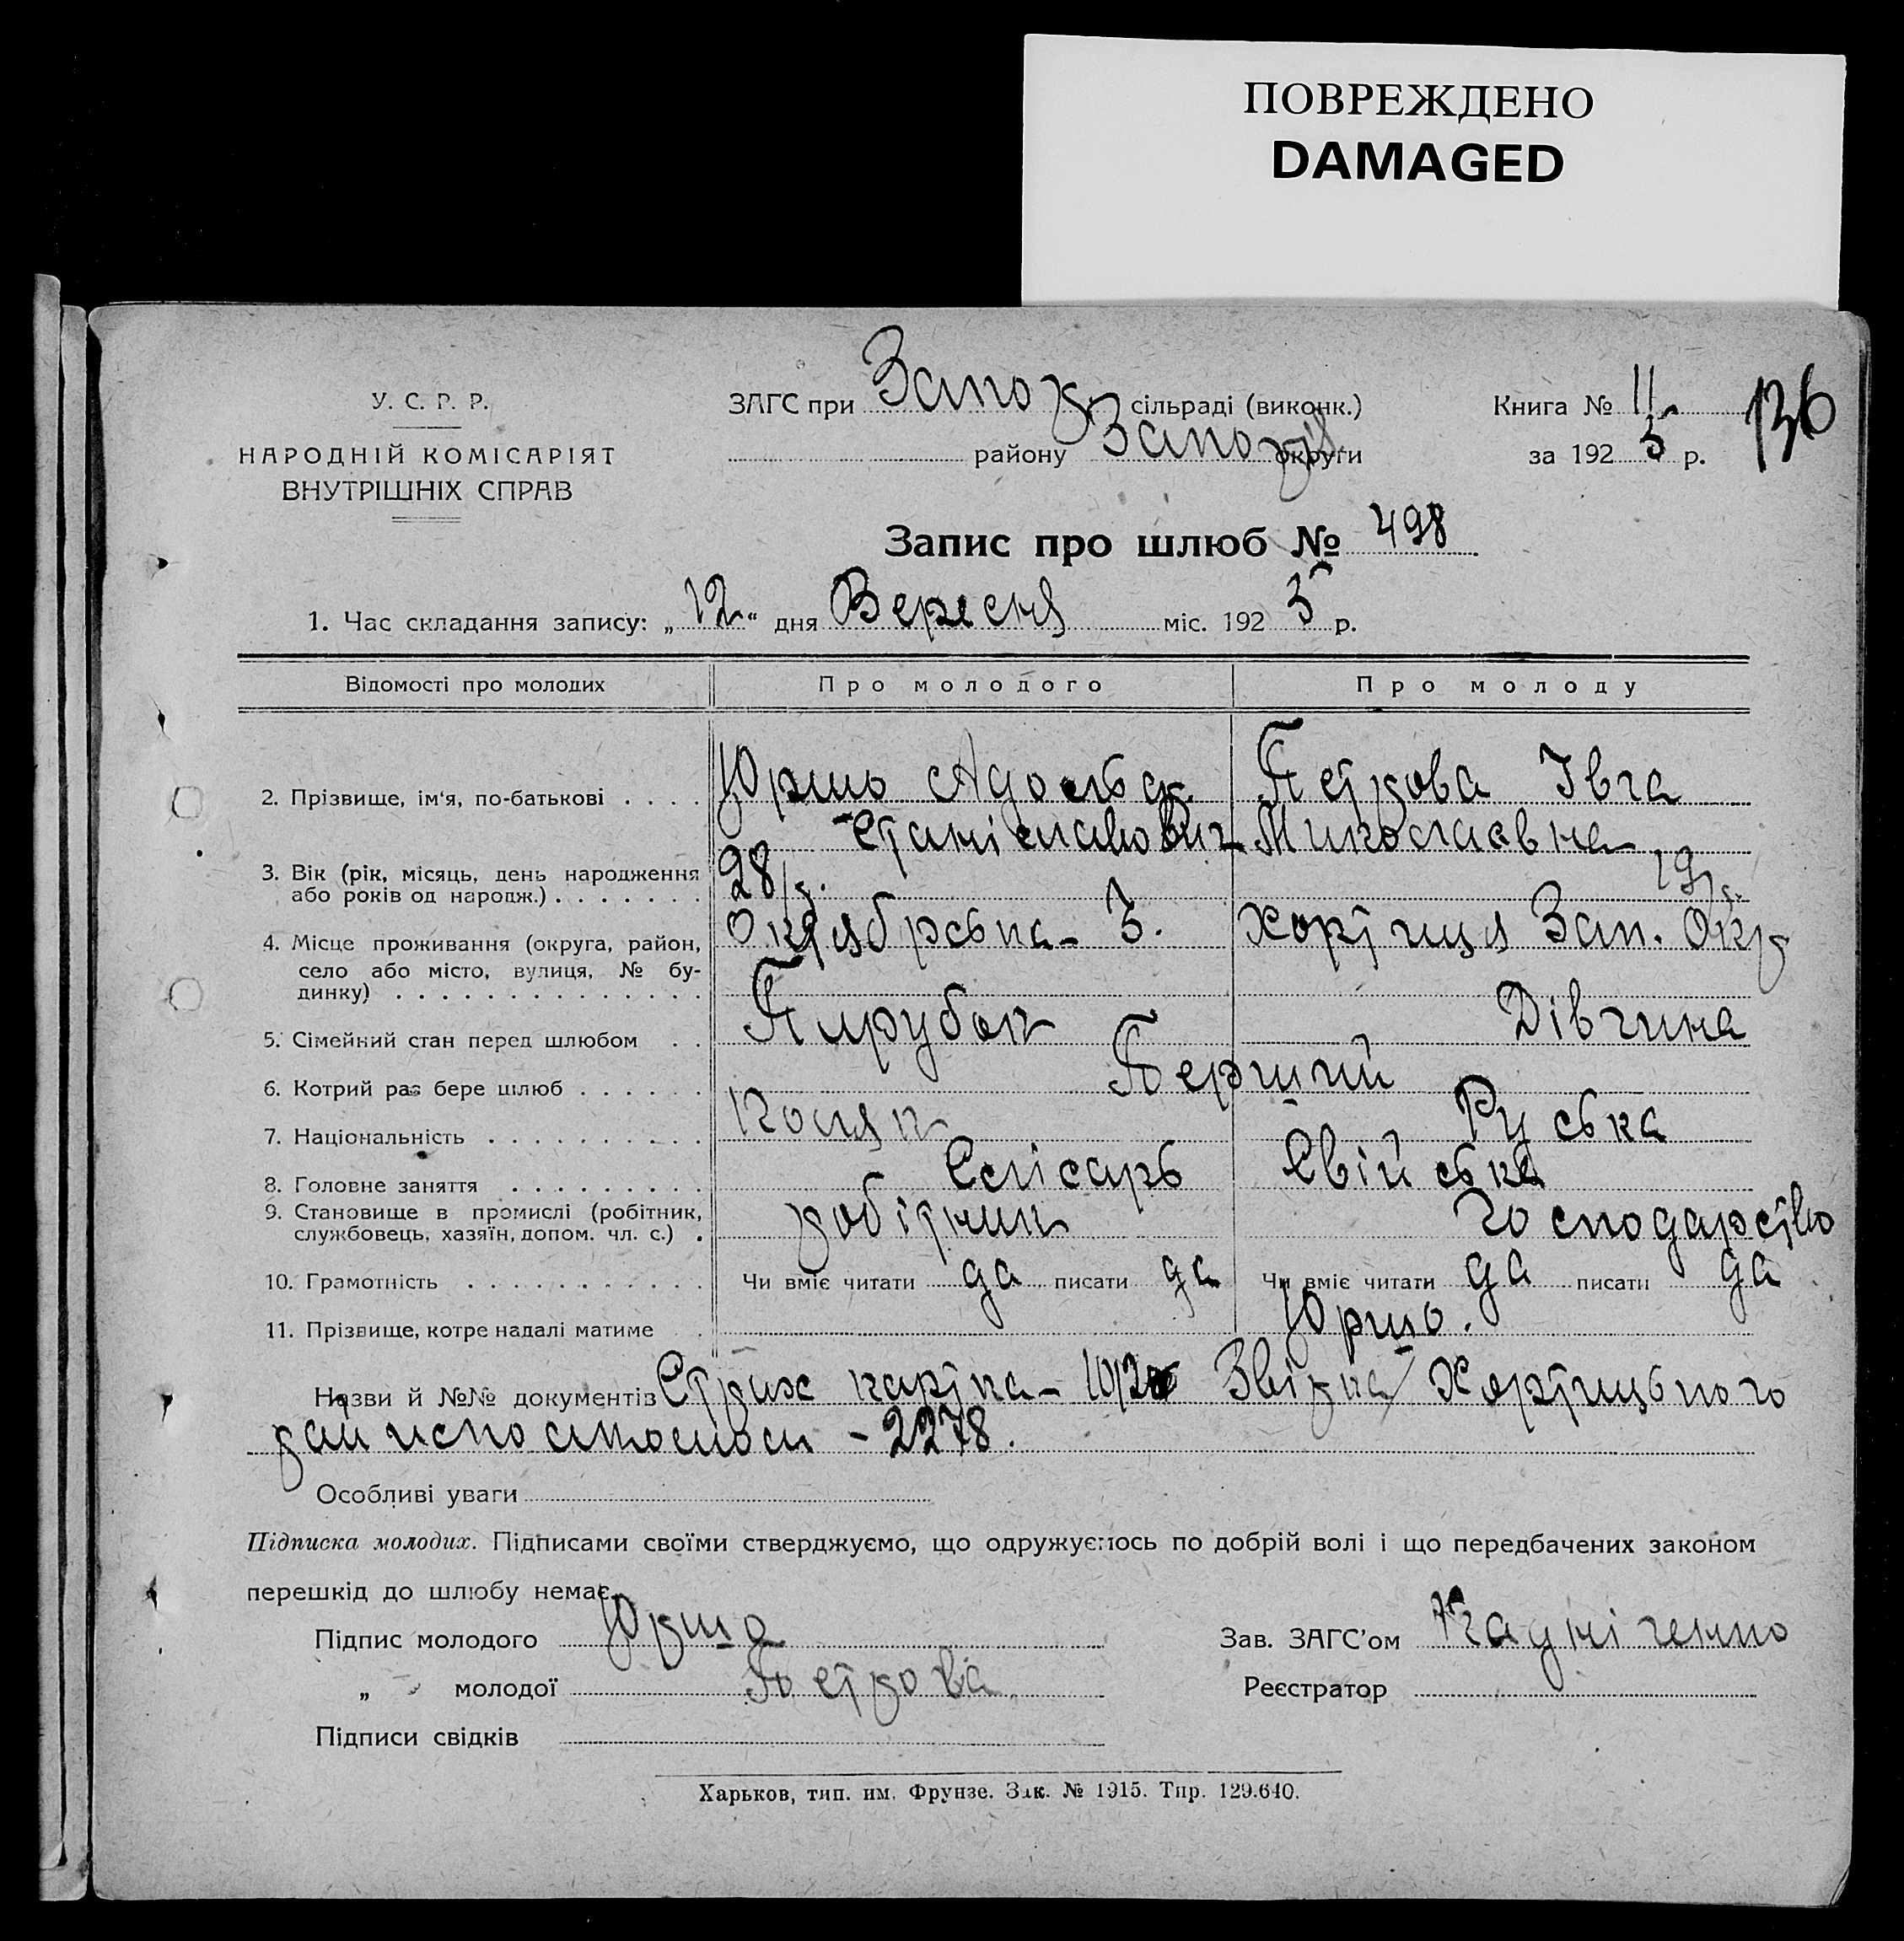 ПОВРЕЖДЕНО
DAMAGED
У. С. Р. Р.
НАРОДНІЙ КОМІСАРІЯТ
ВНУТРІШНІХ СПРАВ
ЗАГС при Запор. сільраді (виконк.)
району Запоріз. округи
Книга № 11
за 1925 р.
136
Запис про шлюб № 498
1. Час складання запису: „12“ дня Вересня міс. 1925 р.
Відомості про молодих Про молодого Про молоду
2. Прізвище, ім'я, по-батькові . . . . Юршо Адольф Петрова Ївга
Станіславович Миколаєвна
3. Вік (рік, місяць, день народження 28 р. 19 р.
або років од народж.) . . . . . . .
4. Місце проживання (округа, район, Октябрська - 3. Хортиця Зап. Окр
село або місто, вулиця, № бу-
динку) . . . . . . . . . . . . . .
5. Сімейний стан перед шлюбом . . Парубок Дівчина
6. Котрий раз бере шлюб . . . . . . Перший
7. Національність . . . . . . . . . . Поляк Руська
8. Головне заняття . . . . . . . . . Слісарь Свійське
9. Становище в промислі (робітник, робітник Господарство
службовець, хазяїн, допом. чл. с.) .
10. Грамотність . . . . . . . . . . . Чи вміє читати да писати да Чи вміє читати да писати да
11. Прізвище, котре надалі матиме . Юршо.
Назви й №№ документів Страх картка - Хортицького
- 2278.
Особливі уваги
Підписка молодих. Підписами своїми стверджуємо, що одружуємось по добрій волі і що передбачених законом
перешкід до шлюбу немає.
Підпис молодого Юршо Зав. ЗАГС'ом
„ молодої Петрова Реєстратор
Підписи свідків
Харьков, тип. им. Фрунзе. Зак. № 1915. Тир. 129.640.